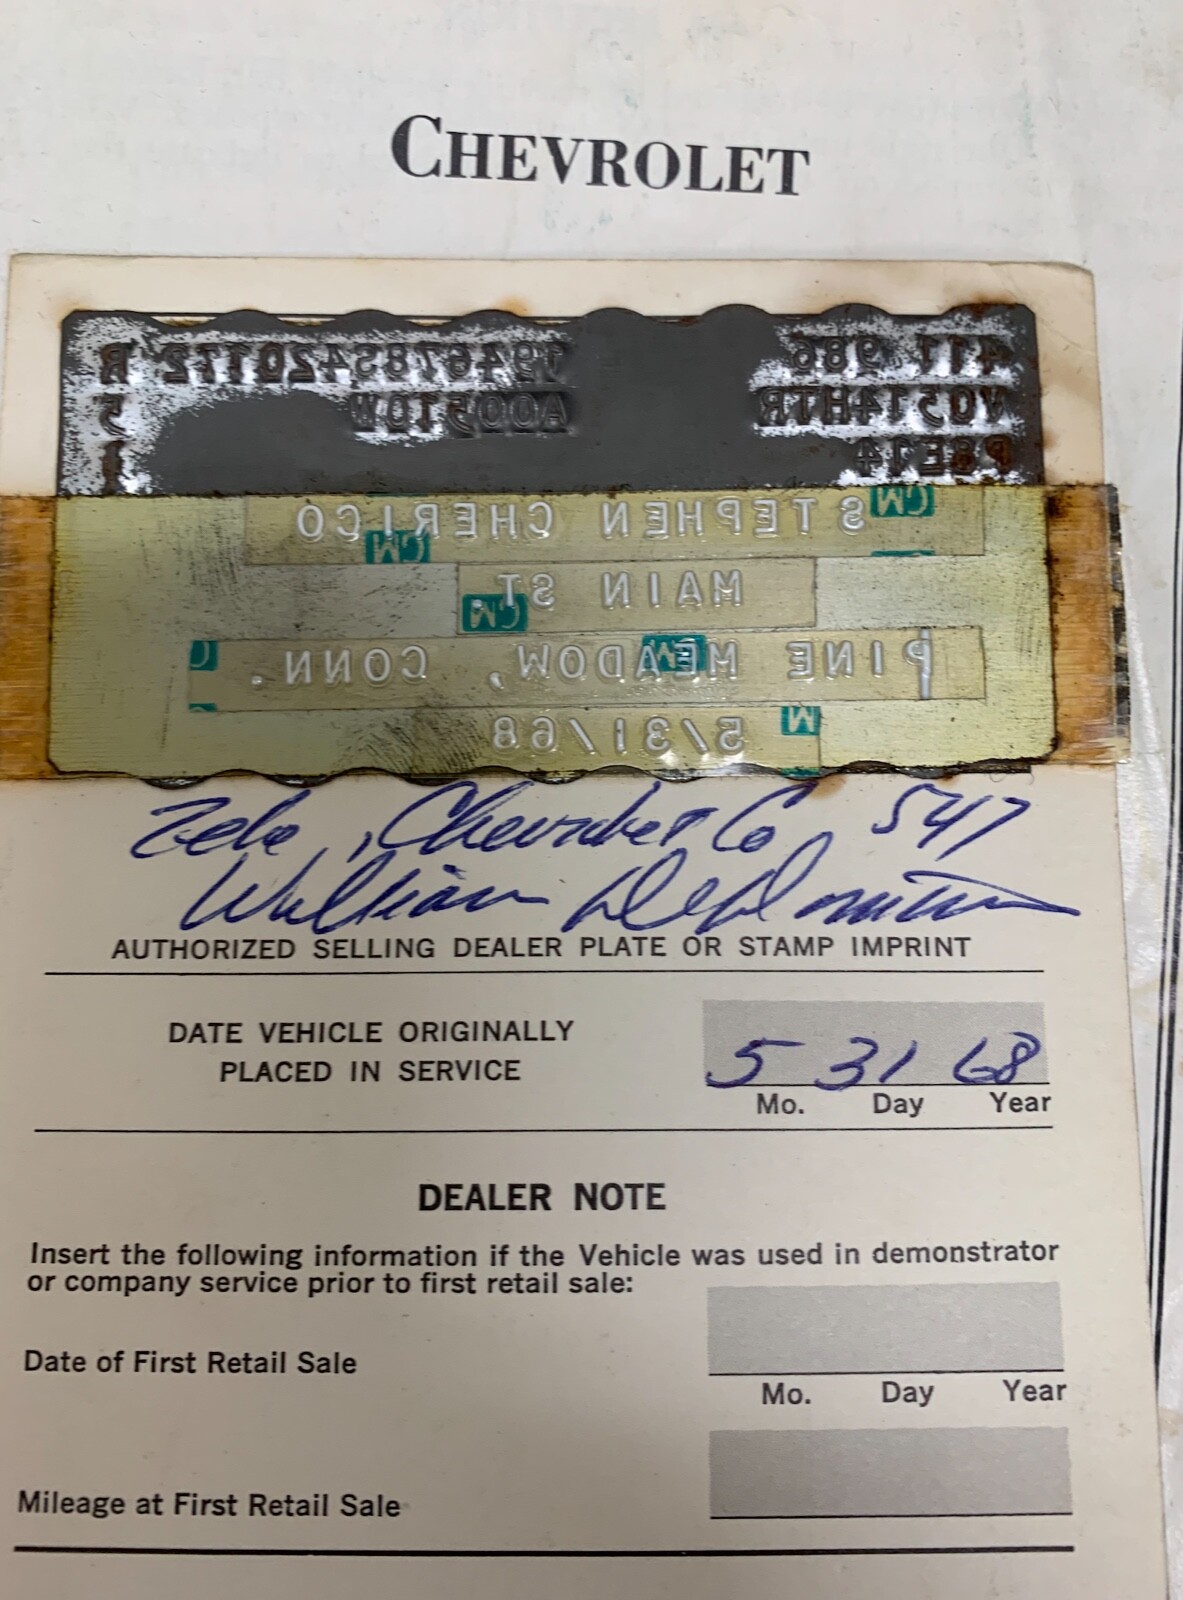 CHEVROLET
411 986 194678S420172 R
V0314HTR A00510W 5
P8E14 1
STEPHEN CHERICO
MAIN ST.
PINE MEADOW, CONN.
5/31/68
Chevrolet Co 547
William
AUTHORIZED SELLING DEALER PLATE OR STAMP IMPRINT
DATE VEHICLE ORIGINALLY
PLACED IN SERVICE
5 31 68
Mo. Day Year
DEALER NOTE
Insert the following information if the Vehicle was used in demonstrator
or company service prior to first retail sale:
Date of First Retail Sale
Mo. Day Year
Mileage at First Retail Sale